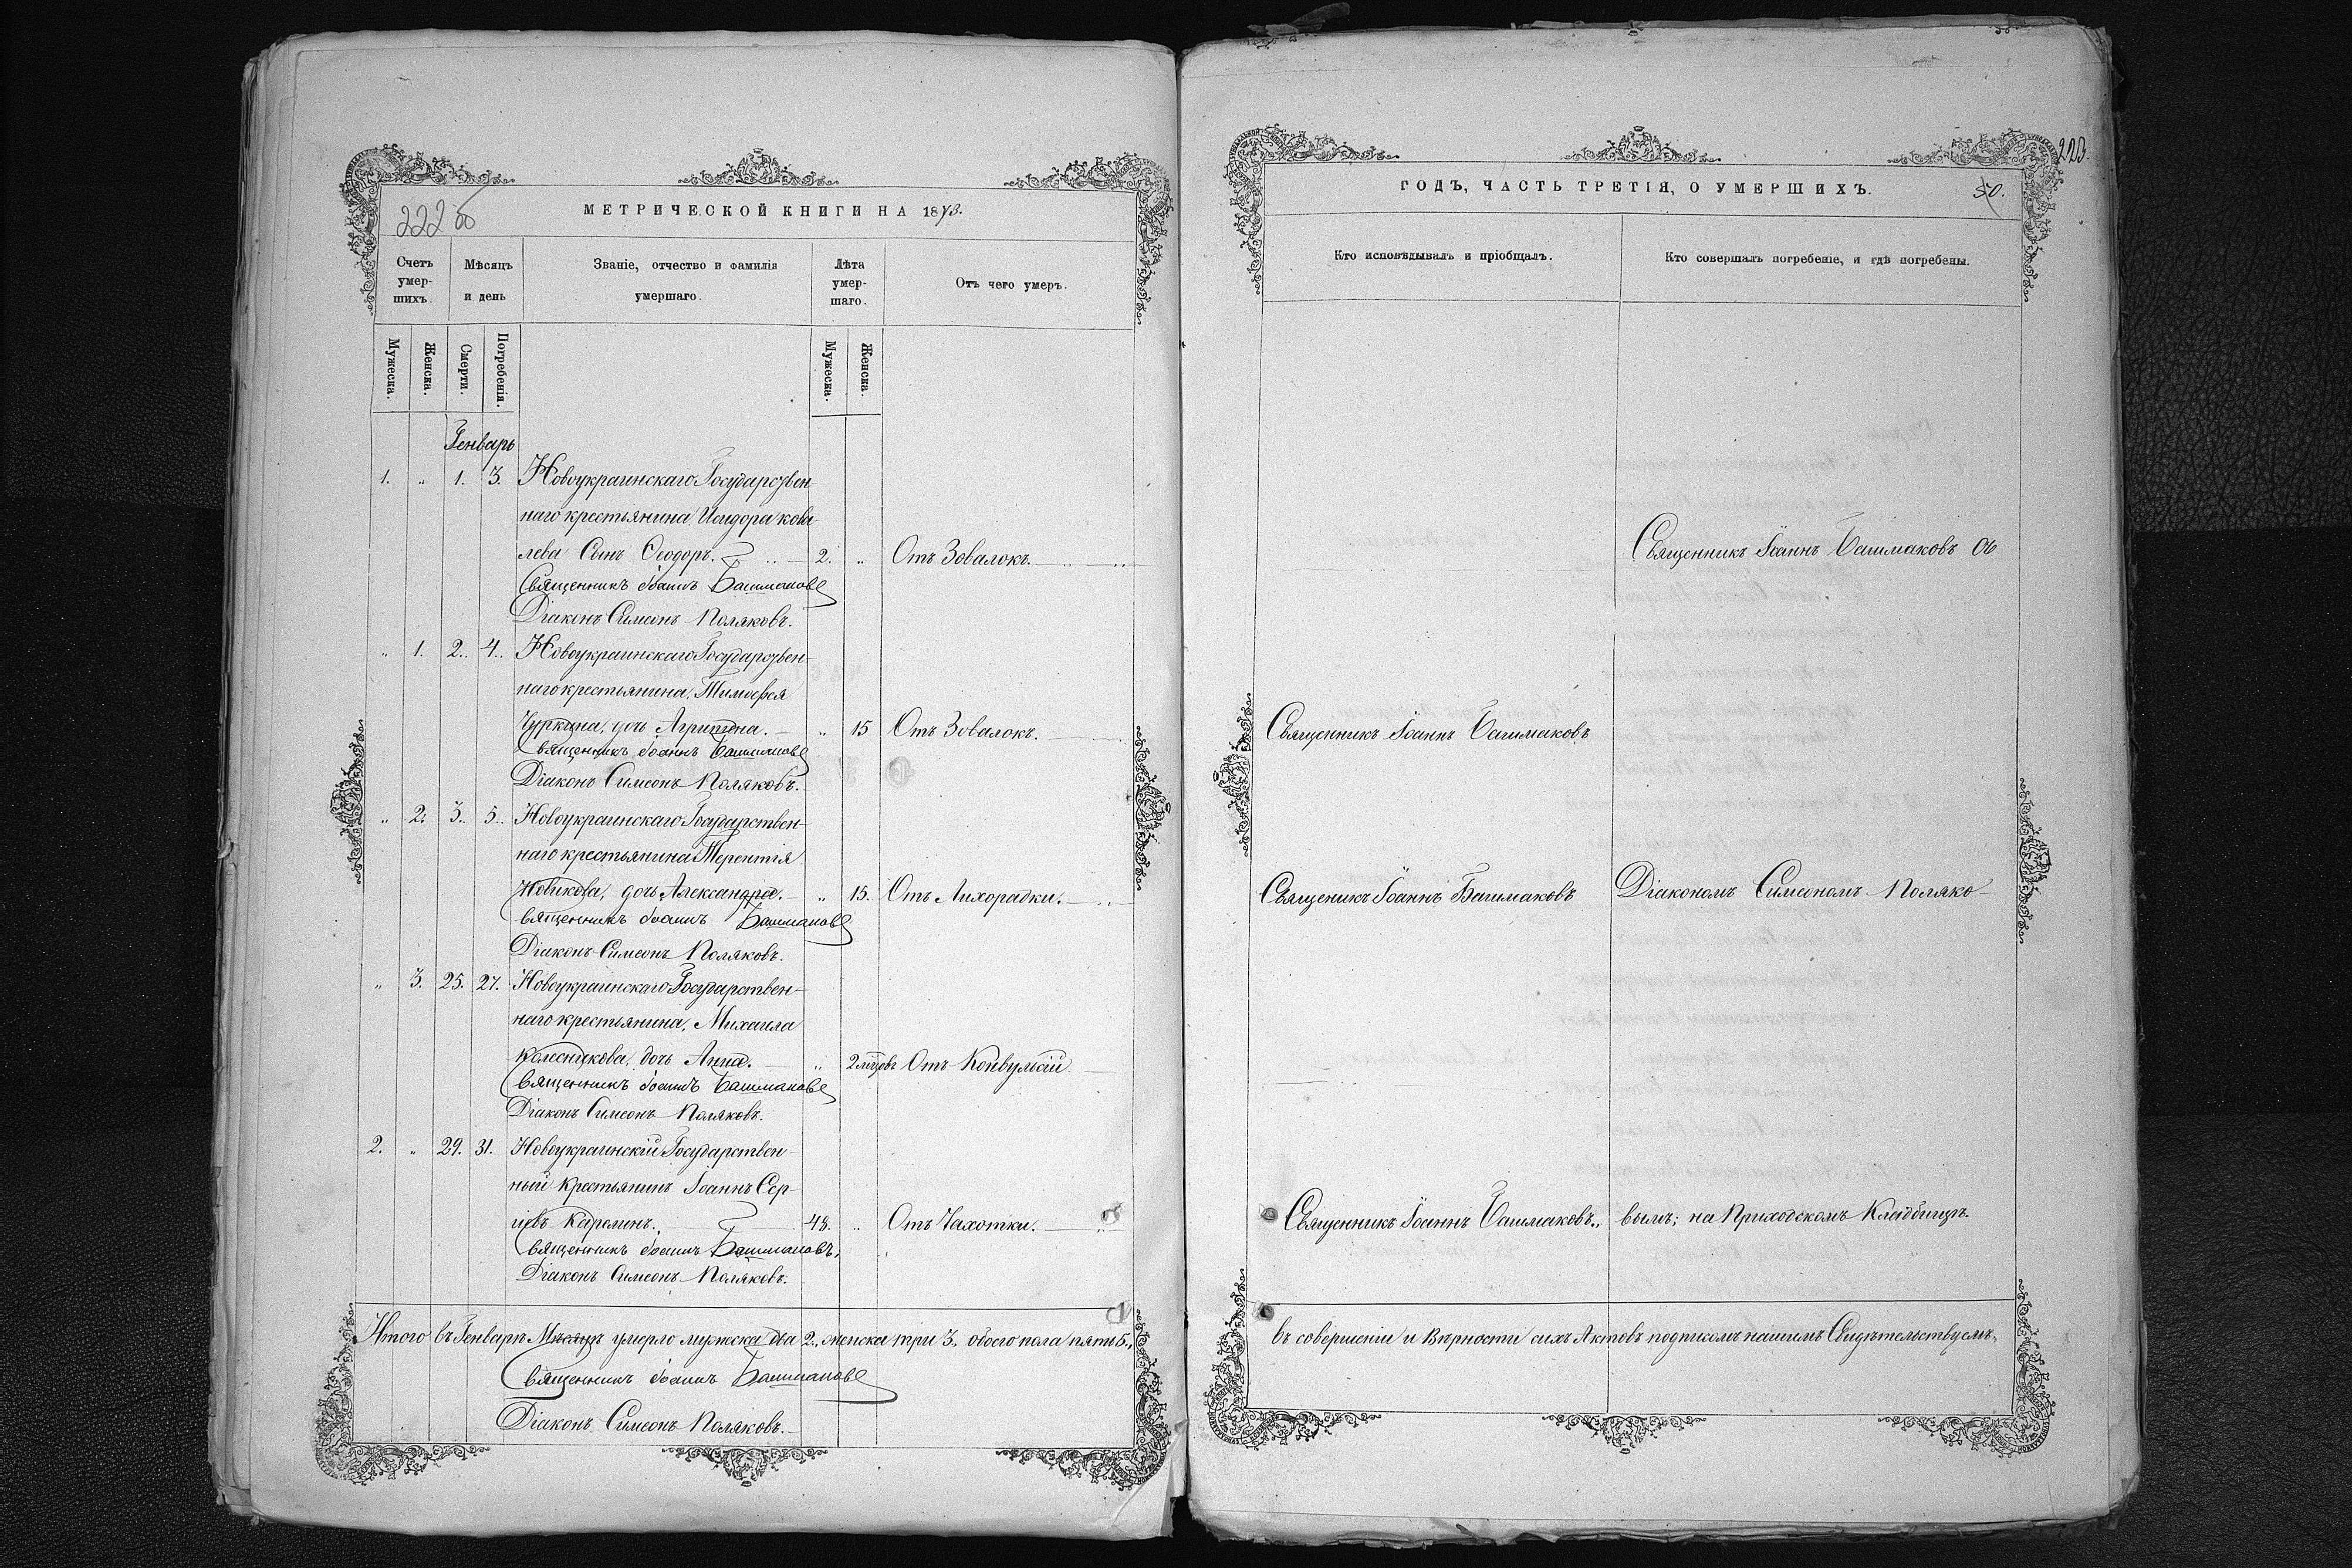 222 об
МЕТРИЧЕСКОЙ КНИГИ НА 1873.
Счетъ умер-шихъ.
Мѣсяцъ и день
Званіе, отчество и фамилія умершаго.
Лѣта умер-шаго.
Отъ чего умеръ.
Мужеска. Женска. Смерти. Погребенія. Мужеска. Женска.
Генварь
1. „ 1. 3. Новоукраинскаго Государствен-
наго крестьянина Исидора кова-
лева Сынъ Ѳеодоръ. 2. „ Отъ Зовалокъ.
Священникъ Іоаннъ Башмаковъ
Діаконъ Симеонъ Поляковъ.
„ 1. 2. 4. Новоукраинскаго Государствен-
наго крестьянина, Тимоѳея
Чуркина, дочь Агрипина. „ 15 Отъ Зовалокъ.
Священникъ Іоаннъ Башмаковъ
Діаконъ Симеонъ Поляковъ.
„ 2. 3. 5. Новоукраинскаго Государствен-
наго крестьянина Терентія
Новикова, дочь Александра. „ 15. Отъ Лихорадки.
Священникъ Іоаннъ Башмаковъ
Діаконъ Симеонъ Поляковъ.
„ 3. 25. 27. Новоукраинскаго Государствен-
наго крестьянина, Михаила
Колесникова, дочь Анна. „ 2 мѣсяцовъ Отъ Конвульсій.
Священникъ Іоаннъ Башмаковъ
Діаконъ Симеонъ Поляковъ.
2. „ 29. 31. Новоукраинскій Государствен-
ный крестьянинъ Іоаннъ Сер-
гіевъ 48. „ Отъ Чахотки.
Священникъ Іоаннъ Башмаковъ,
Діаконъ Симеонъ Поляковъ.
Итого въ Генварѣ Мѣсяцѣ умерло мужеска два 2., женска три 3., обоего пола пять 5.,
Священникъ Іоаннъ Башмаковъ
Діаконъ Симеонъ Поляковъ.
223.
ГОДЪ, ЧАСТЬ ТРЕТІЯ, О УМЕРШИХЪ.
50.
Кто исповѣдывалъ и пріобщалъ.
Кто совершалъ погребеніе, и гдѣ погребены.
Священникъ Іоаннъ Башмаковъ съ
Священникъ Іоаннъ Башмаковъ
Священикъ Іоаннъ Башмаковъ Діакономъ Симеономъ Поляко-
Священникъ Іоаннъ Башмаковъ., вымъ; на Приходскомъ Кладбищѣ.
въ совершеніи и Вѣрности сихъ Актовъ подписомъ нашимъ Свидѣтельствуемъ,